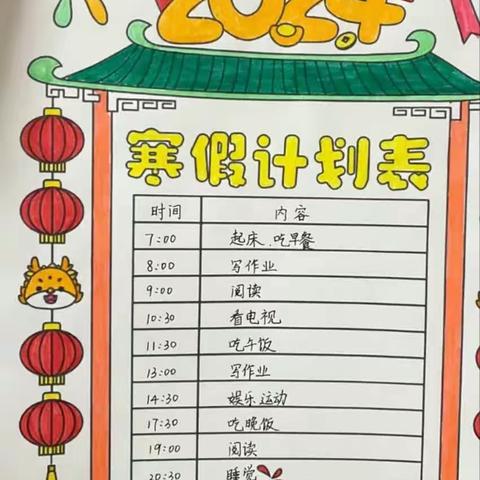 2024
寒假计划表
时间 内容
7:00 起床、吃早餐
8:00 写作业
9:00 阅读
10:30 看电视
11:30 吃午饭
13:00 写作业
14:30 娱乐运动
17:30 吃晚饭
19:00 阅读
20:30 睡觉